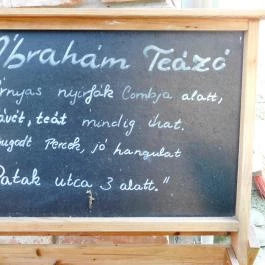 Ábrahám Teázó
Árnyas nyírfák Combja alatt,
Kávét, teát mindig ihat.
Nyugodt Percek, jó hangulat
Patak utca 3 alatt."